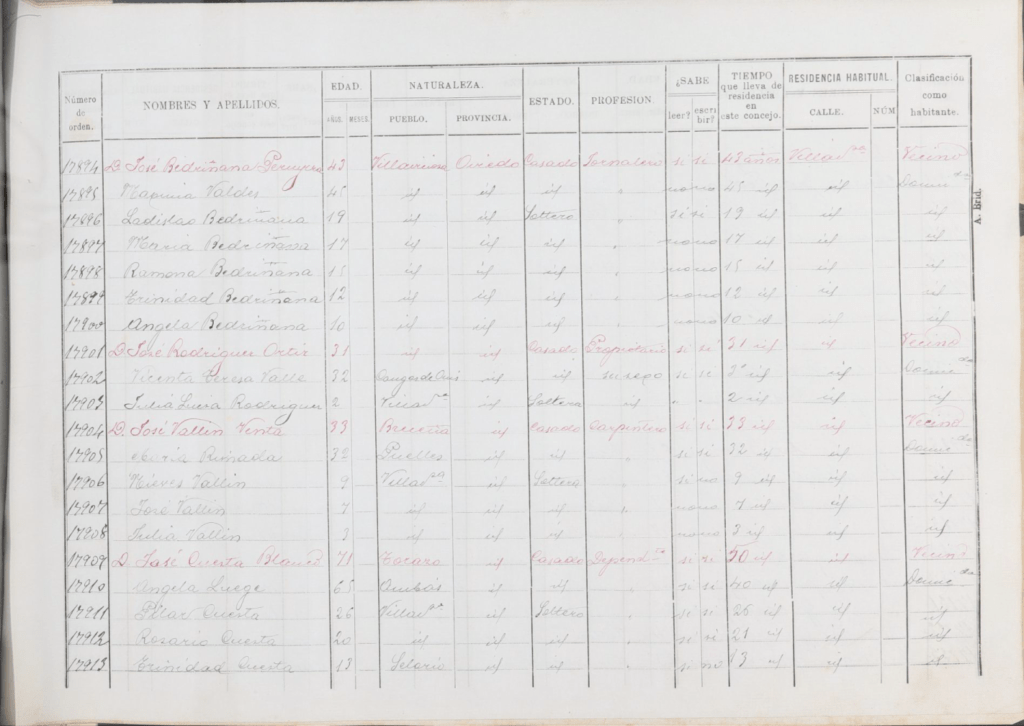 Número de orden. NOMBRES Y APELLIDOS. EDAD. AÑOS. MESES. NATURALEZA. PUEBLO. PROVINCIA. ESTADO. PROFESION. ¿SABE leer? escribir? TIEMPO que lleva de residencia en este concejo. RESIDENCIA HABITUAL. CALLE. NÚM Clasificación como habitante.
17894 D. José Bedriñana 43 Oviedo Casado Jornalero si si 43 años Villavsa Vecino
17895 Maximina Valdés 45 id id id " no no 45 id id Domicda
17896 Ladislao Bedriñana 19 id id Soltero " si si 19 id id id
17897 María Bedriñana 17 id id id " no no 17 id id id
17898 Ramona Bedriñana 15 id id id " no no 15 id id id
17899 Trinidad Bedriñana 12 id id id " no no 12 id id id
17900 Angela Bedriñana 10 id id id " no no 10 id id id
17901 D. José Rodriguez Ortiz 31 id id Casado Propietario si si 31 id id Vecino
17902 Vicenta Teresa Valle 32 Cangas de Onís id id su sexo si si id id Domicda
17903 Julia Luisa Rodriguez 2 Villavsa id Soltera id " " 2 id id id
17904 D. José Vallin Venta 33 id Casado Carpintero si si 33 id id Vecino
17905 María 32 Puelles id id " si si 32 id id Domicda
17906 Nieves Vallin 9 Villavsa id Soltera " si no 9 id id id
17907 José Vallin 7 id id id " no no 7 id id id
17908 Julia Vallin 3 id id id " no no 3 id id id
17909 D. José Cuesta Blanco 71 id Casado si si 50 id id Vecino
17910 Angela Luege 65 id id " si si 40 id id Domicda
17911 Pilar Cuesta 26 Villavsa id Soltera " si si 26 id id id
17912 Rosario Cuesta 20 id id id " si si 21 id id id
17913 Trinidad Cuesta 13 Selorio id id " si no 13 id id id
A. Brid.